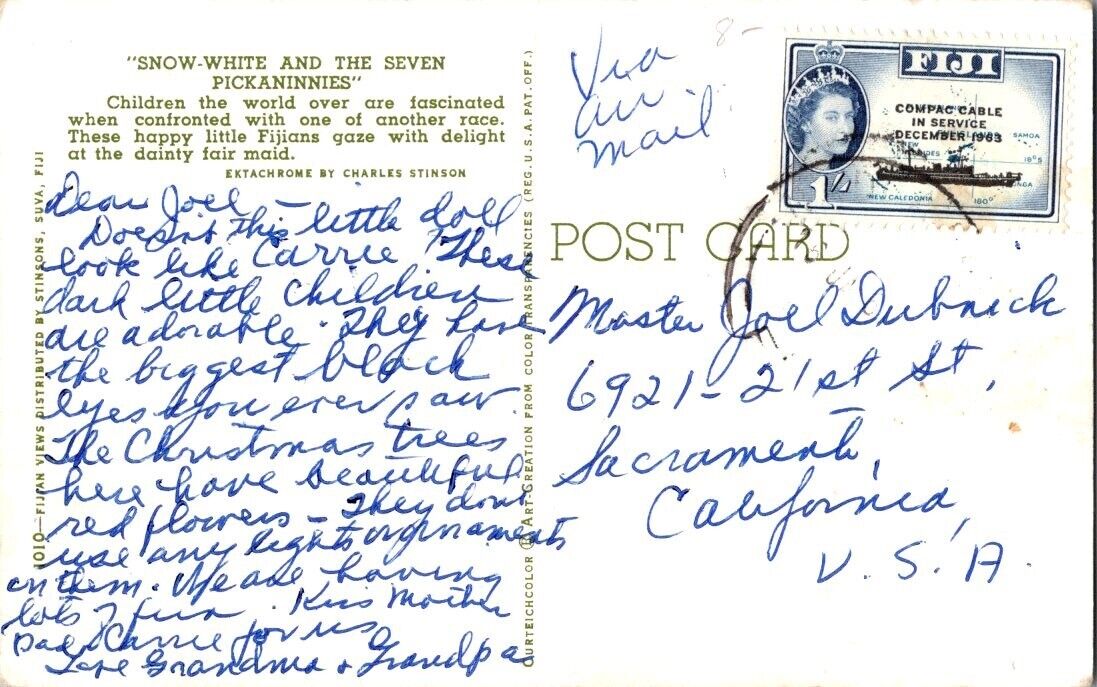 "SNOW-WHITE AND THE SEVEN
PICKANINNIES"
Children the world over are fascinated
when confronted with one of another race.
These happy little Fijians gaze with delight
at the dainty fair maid.
EKTACHROME BY CHARLES STINSON
Dear Joel –
Doesn't this little doll
look like Carrie? These
dark little children
are adorable. They have
the biggest black
eyes you ever saw.
The Christmas trees
here have beautiful
red flowers – They dont
use any lights or ornaments
on them. We are having
lots of fun. Kiss Mother
Dad & Carrie for us
Love Grandma & Grandpa
1010—FIJIAN VIEWS DISTRIBUTED BY STINSONS, SUVA, FIJI
CURTEICHCOLOR ® ART-CREATION FROM COLOR TRANSPARENCIES (REG. U.S.A. PAT. OFF.)
Via
air
mail
8-
FIJI
COMPAC CABLE
IN SERVICE
DECEMBER 1963
SAMOA
18°S
NEW CALEDONIA
180°
1/-
POST CARD
Master Joel Dubnick
6921-21st St,
Sacramento,
California,
U.S.A.